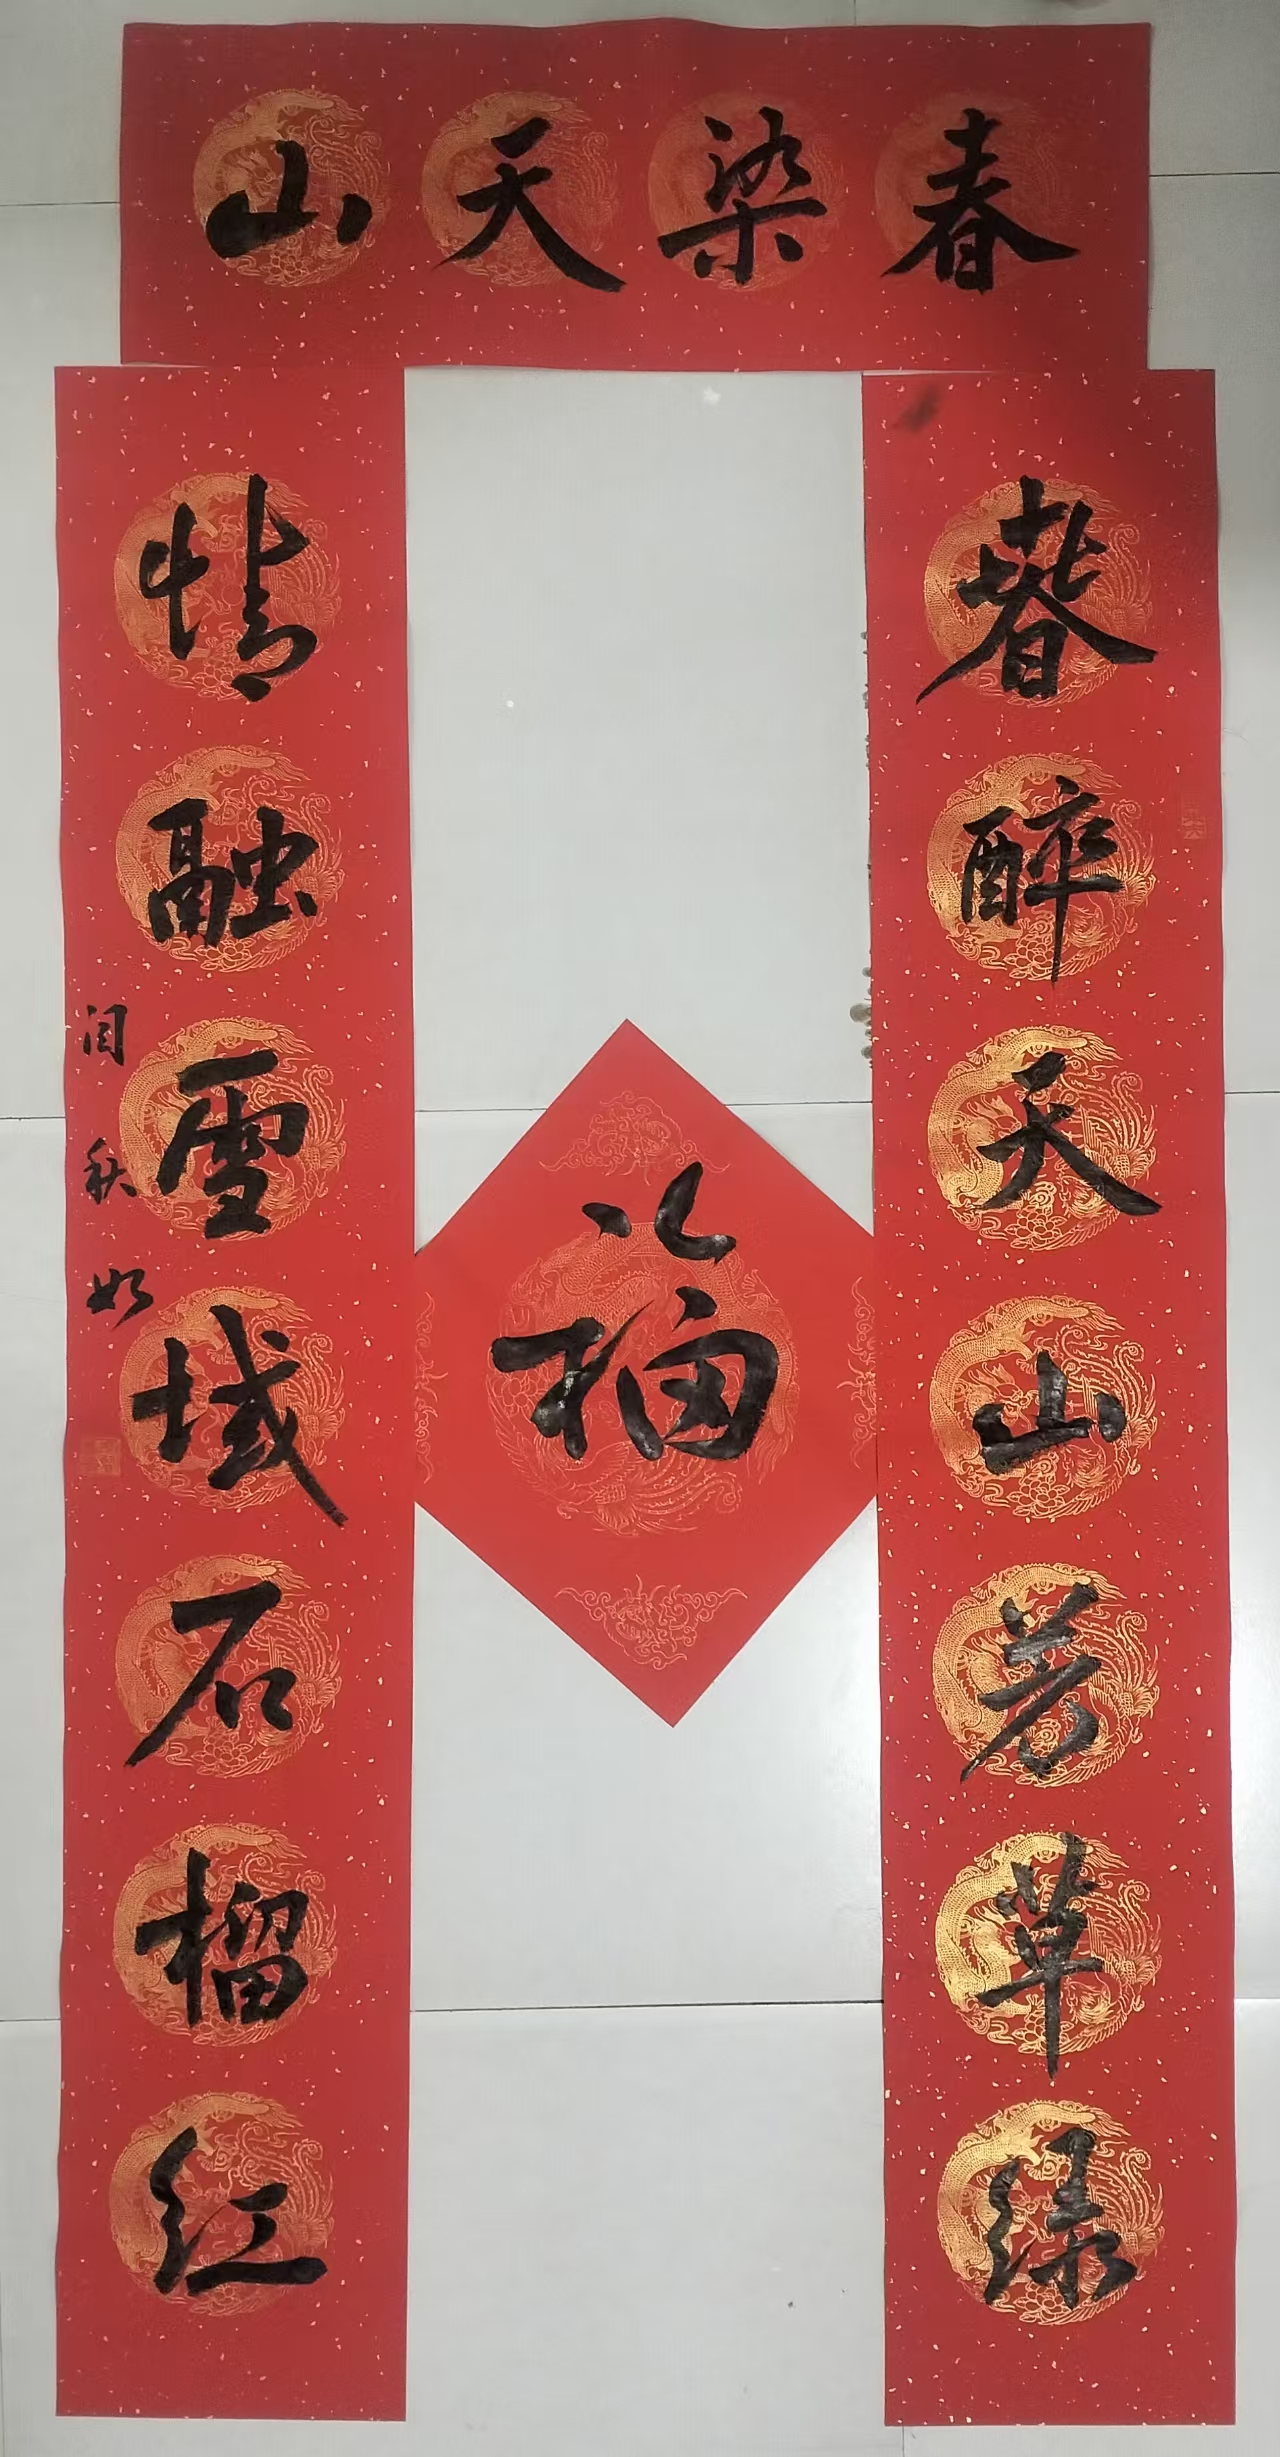 春染天山
春醉天山芳草绿
情融雪域石榴红
闫秋如
福